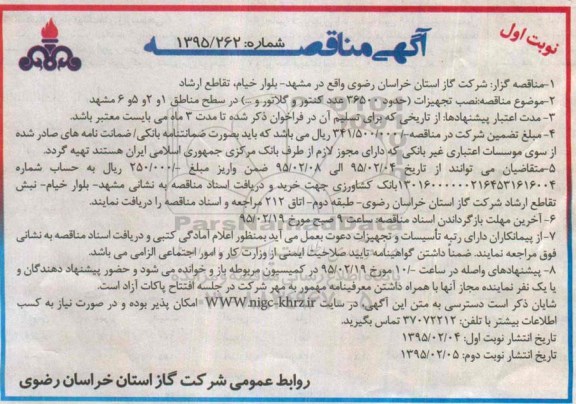 نوبت اول
آگهی مناقصه
شماره: ۱۳۹۵/۲۶۲
۱-مناقصه گزار: شرکت گاز استان خراسان رضوی واقع در مشهد- بلوار خیام، تقاطع ارشاد
۲-موضوع مناقصه:نصب تجهیزات (حدود ۳۶۵۰۰ عدد کنتور و رگلاتور و ...) در سطح مناطق ۱و ۲و ۵و ۶ مشهد
۳- مدت اعتبار پیشنهادها: از تاریخی که برای تسلیم آن در فراخوان ذکر شده تا مدت ۳ ماه می بایست معتبر باشد.
۴- مبلغ تضمین شرکت در مناقصه-/۳۴۱/۵۰۰/۰۰۰ ریال می باشد که باید بصورت ضمانتنامه بانکی/ ضمانت نامه های صادر شده
از سوی موسسات اعتباری غیر بانکی که دارای مجوز لازم از طرف بانک مرکزی جمهوری اسلامی ایران هستند تهیه گردد.
۵-متقاضیان می توانند از تاریخ ۹۵/۰۲/۰۴ الی ۹۵/۰۲/۰۸ ضمن واریز مبلغ -/۲۵۰/۰۰۰ ریال به حساب شماره
بانک کشاورزی جهت خرید و دریافت اسناد مناقصه به نشانی مشهد- بلوار خیام- نبش
تقاطع ارشاد شرکت گاز استان خراسان رضوی- طبقه دوم- اتاق ۲۱۲ مراجعه و اسناد مناقصه را دریافت نمایند.
۶- آخرین مهلت بازگرداندن اسناد مناقصه: ساعت ۹ صبح مورخ ۹۵/۰۲/۱۹
۷-از پیمانکاران دارای رتبه تأسیسات و تجهیزات دعوت بعمل می آید بمنظور اعلام آمادگی کتبی و دریافت اسناد مناقصه به نشانی
فوق مراجعه نمایند. ضمناً داشتن گواهینامه تایید صلاحیت ایمنی از وزارت کار و امور اجتماعی الزامی می باشد.
۸- پیشنهادهای واصله در ساعت -/۱۰ مورخ ۹۵/۰۲/۱۹ در کمیسیون مربوطه باز و خوانده می شود و حضور پیشنهاد دهندگان و
یا یک نفر نماینده مجاز آنها با همراه داشتن معرفینامه ممهور به مهر شرکت در جلسه افتتاح پاکات آزاد است.
شایان ذکر است دسترسی به متن این آگهی، در سایت www.nigc-khrz.ir امکان پذیر بوده و در صورت نیاز به کسب
اطلاعات بیشتر با تلفن: ۳۷۰۷۲۲۱۲ تماس بگیرید.
تاریخ انتشار نوبت اول: ۱۳۹۵/۰۲/۰۴
تاریخ انتشار نوبت دوم: ۱۳۹۵/۰۲/۰۵
روابط عمومی شرکت گاز استان خراسان رضوی